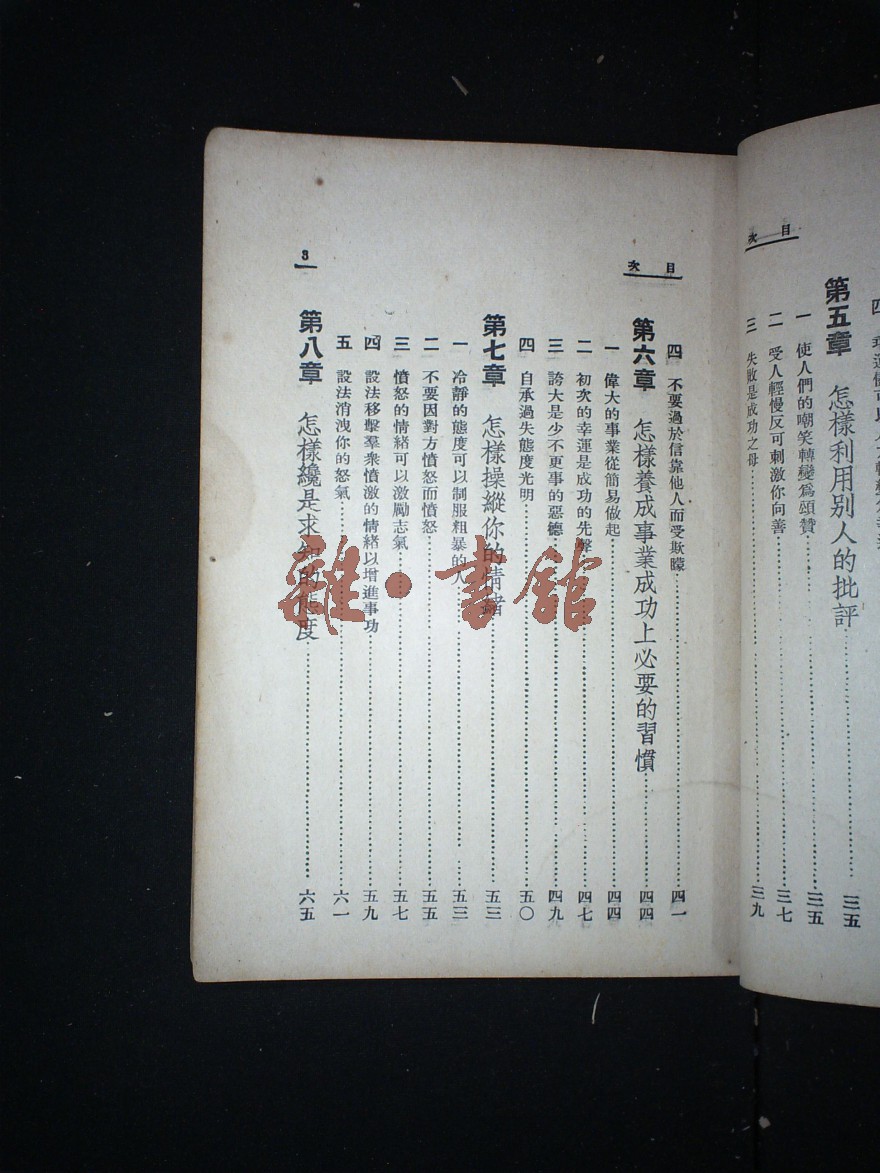 目次
第五章 怎樣利用別人的批評 三五
一 使人們的嘲笑轉變爲頌贊 三五
二 受人輕慢反可刺激你向善 三七
三 失敗是成功之母 三九
目次
四 不要過於信靠他人而受欺矇 四一
第六章 怎樣養成事業成功上必要的習慣 四四
一 偉大的事業從簡易做起 四四
二 初次的幸運是成功的先聲 四七
三 誇大是少不更事的惡德 四九
四 自承過失態度光明 五〇
第七章 怎樣操縱你的情緒 五三
一 冷靜的態度可以制服粗暴的人 五三
二 不要因對方憤怒而憤怒 五五
三 憤怒的情緒可以激勵志氣 五七
四 設法移擊羣衆憤激的情緒以增進事功 五九
五 設法消洩你的怒氣 六一
第八章 怎樣纔是求知的態度 六五
3
雜·書館